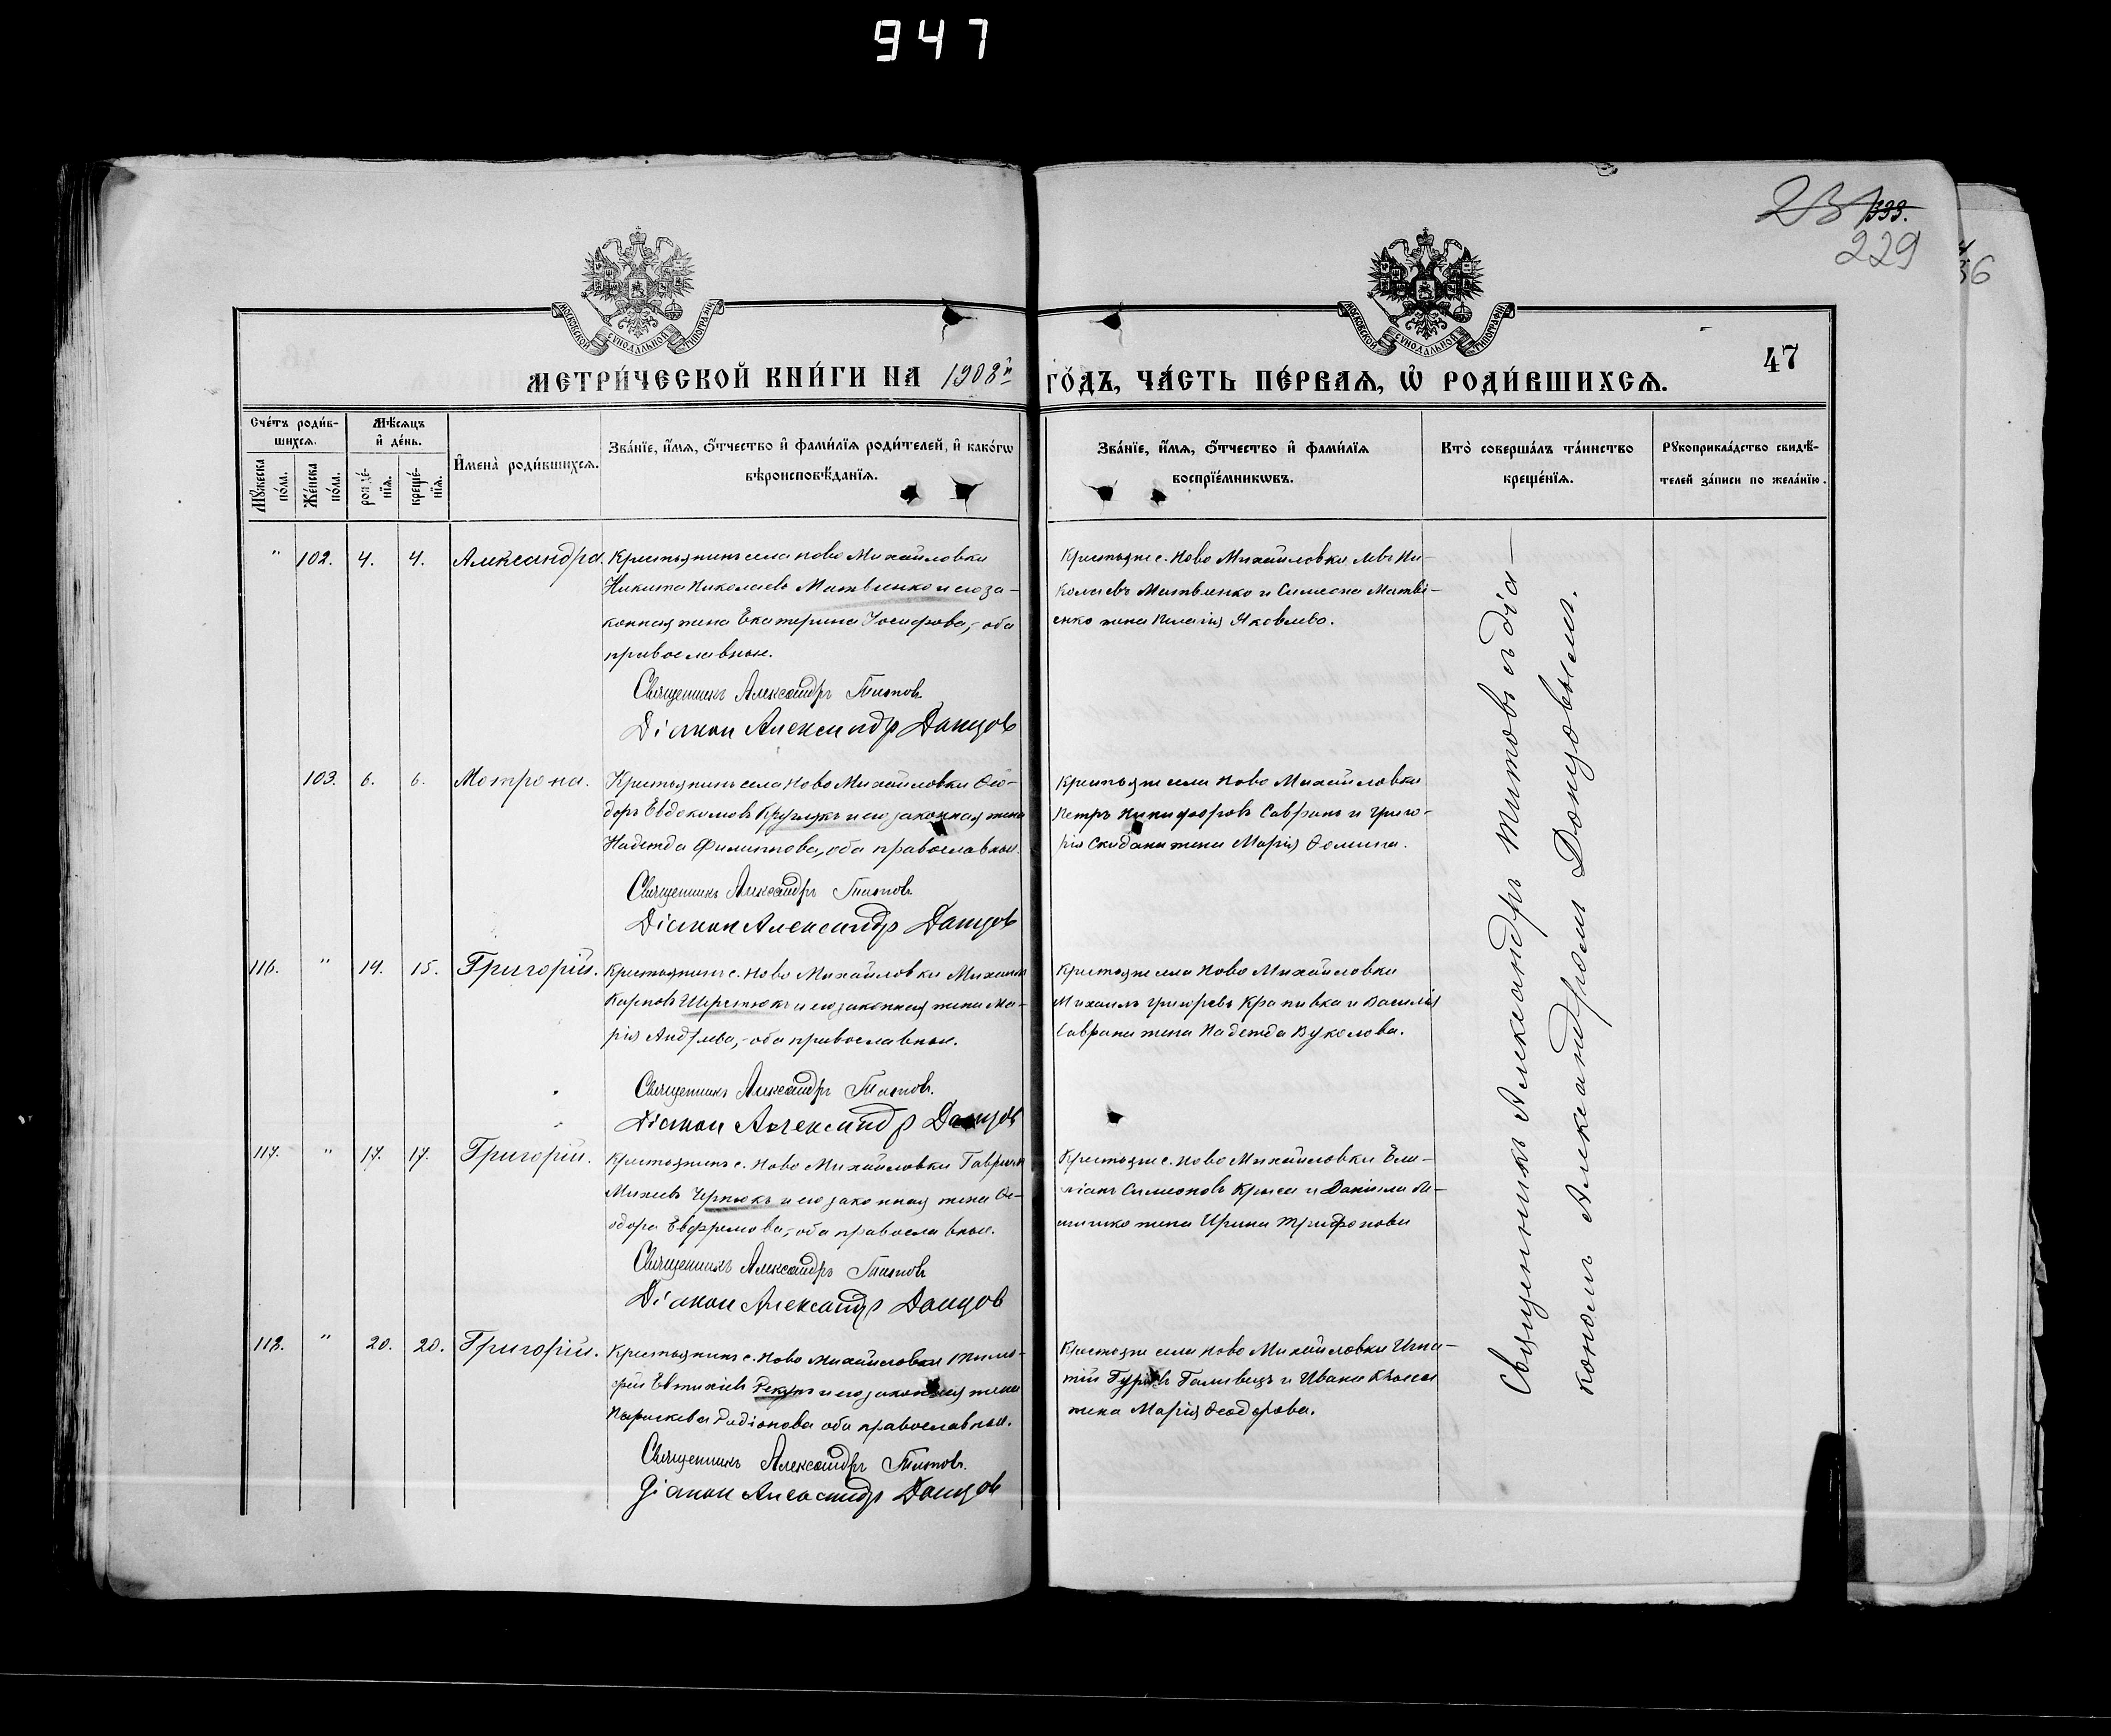 947
231 333.
229
36
МОСКОВСКОЙ СѴНОДАЛЬНОЙ ТИПОГРАФІИ
МОСКОВСКОЙ СѴНОДАЛЬНОЙ ТИПОГРАФІИ
47
МЕТРИ́ЧЕСКОЙ КНИ́ГИ НА 1908й ГО́ДЪ, ЧА́СТЬ ПЕ́РВАЯ, Ѡ҆ РОДИ́ВШИХСЯ.
Сче́тъ роди́в-
шихся.
Мꙋ́жеска по́ла.
Же́нска по́ла.
Мѣ́сяцъ
и҆ де́нь.
рожде́-
нїя.
креще́-
нїя.
И҆мена̀ роди́вшихся.
Зва́нїе, и҆́мя, ѻ҆́тчество и҆ фами́лїя роди́телей, и҆ како́гѡ
вѣроисповѣ́данїя.
Зва́нїе, и҆́мя, ѻ҆́тчество и҆ фами́лїя
воспрїе́мникѡвъ.
Кто̀ соверша́лъ та́инство
креще́нїя.
Рꙋкоприкла́дство свидѣ́-
телей за́писи по жела́нїю.
" 102. 4. 4. Александра.
Крестьянинъ села Ново Михайловки
Никита Николаевъ Матвіенко и его за-
конная жена Екатерина Іосифова,- оба
православные.
Священникъ Александръ Титовъ
Діакон Александр Данцов
Крестьяне с. Ново Михайловки Левъ Ни-
колаевъ Матвіенко и Симеона Матві-
енко жена Пелагія Яковлева.
103. 6. 6. Мотрона.
Крестьянинъ села Ново Михайловки Ѳео-
доръ Евдокимовъ Круглякъ и его законная жена
Надежда Филиппова, оба православные.
Священникъ Александръ Титовъ
Діакон Александр Данцов
Крестьяне села Ново Михайловки
Петръ Никифоровъ Савранъ и Григо-
рія Скидана жена Марія Ѳомина.
116. " 14. 15. Григорій.
Крестьянинъ с. Ново Михайловки Михаилъ
Карповъ Шерстюкъ и его законная жена Ма-
рія Андреева,- оба православные.
Священникъ Александръ Титовъ.
Діакон Александр Данцов
Крестьяне села Ново Михайловки
Михаилъ Григорьевъ Крапивка и Василія
Саврана жена Надежда Вуколова.
117. " 17. 17. Григорій.
Крестьянинъ с. Ново Михайловки Гавріилъ
Михеевъ Чернюкъ и его законная жена Ѳе-
одора Евфремова,- оба православные.
Священникъ Александръ Титовъ
Діакон Александр Данцов
Крестьяне с. Ново Михайловки Еми-
ліанъ Симеоновъ Крыса и Даніила
жена Ирина Трифонова
118. " 20. 20. Григорій.
Крестьянинъ с. Ново Михайловки Тимо-
фей Евтихіевъ Рекунъ и его законная жена
Параскева Радіонова оба православные.
Священникъ Александръ Титовъ.
Діакон Александр Данцов
Крестьяне села Ново Михайловки Игна-
тій Гурьевъ и Ивана
жена Марія Ѳеодорова.
Священникъ Александръ Титовъ съ діа-
кономъ Александромъ Донцовымъ.